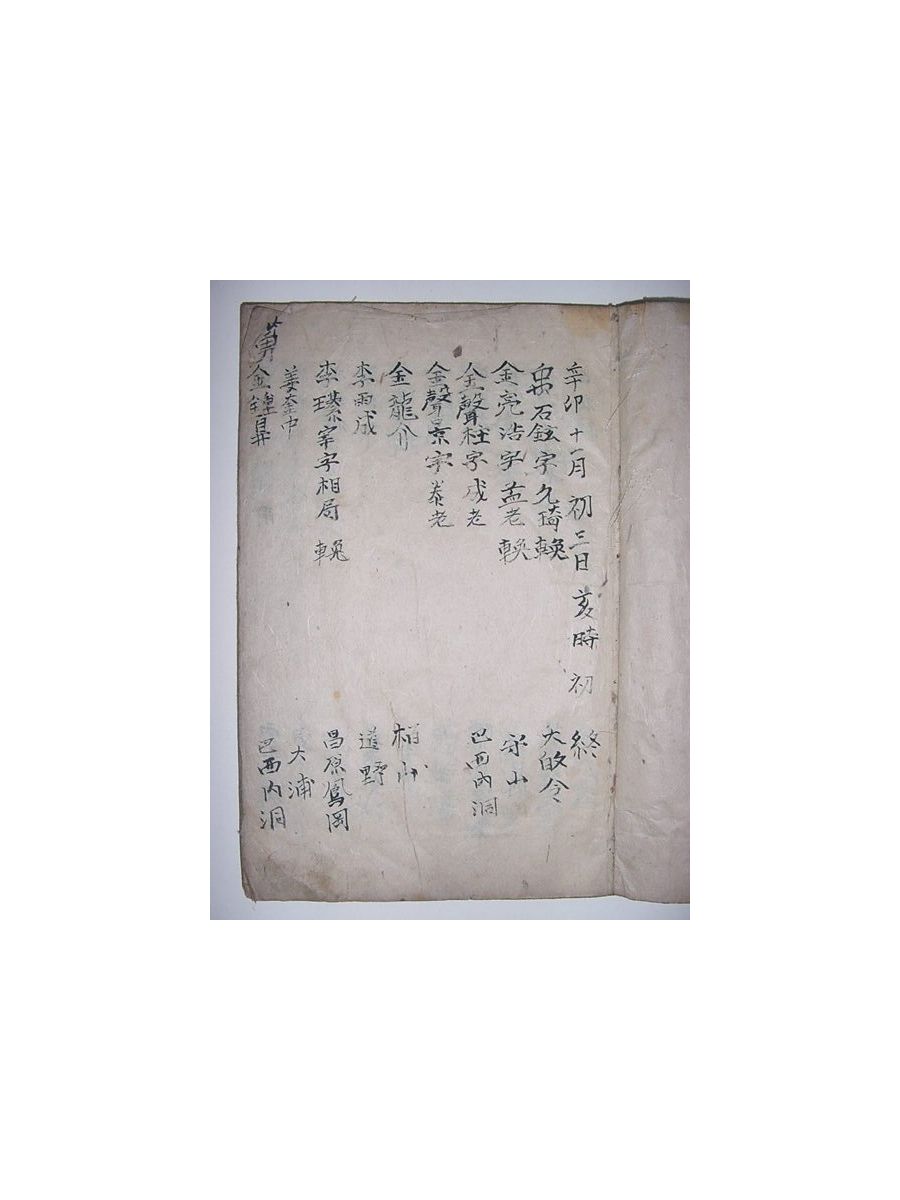 辛卯 十一月 初三日 亥時 初 終
石鉉字久琦輓 大的今
金亮浩字益老輓 守山
金聲柱字成老 巴西內洞
金聲景字泰老
金龍介 栢山
李雨成 道野
李瓚宰字相局 輓 昌原鳳岡
姜奎中 大浦
金鍾昇 巴西內洞